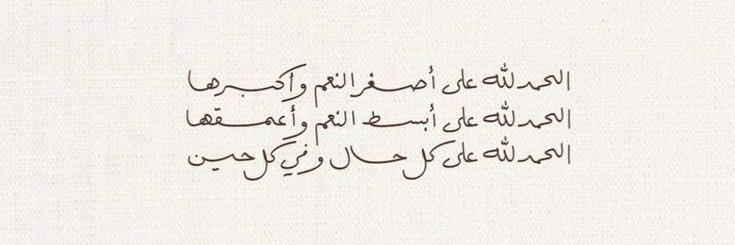 الحمدلله على أصغر النعم وأكبرها
الحمدلله على أبسط النعم وأعمقها
الحمدلله على كل حال وفي كل حين